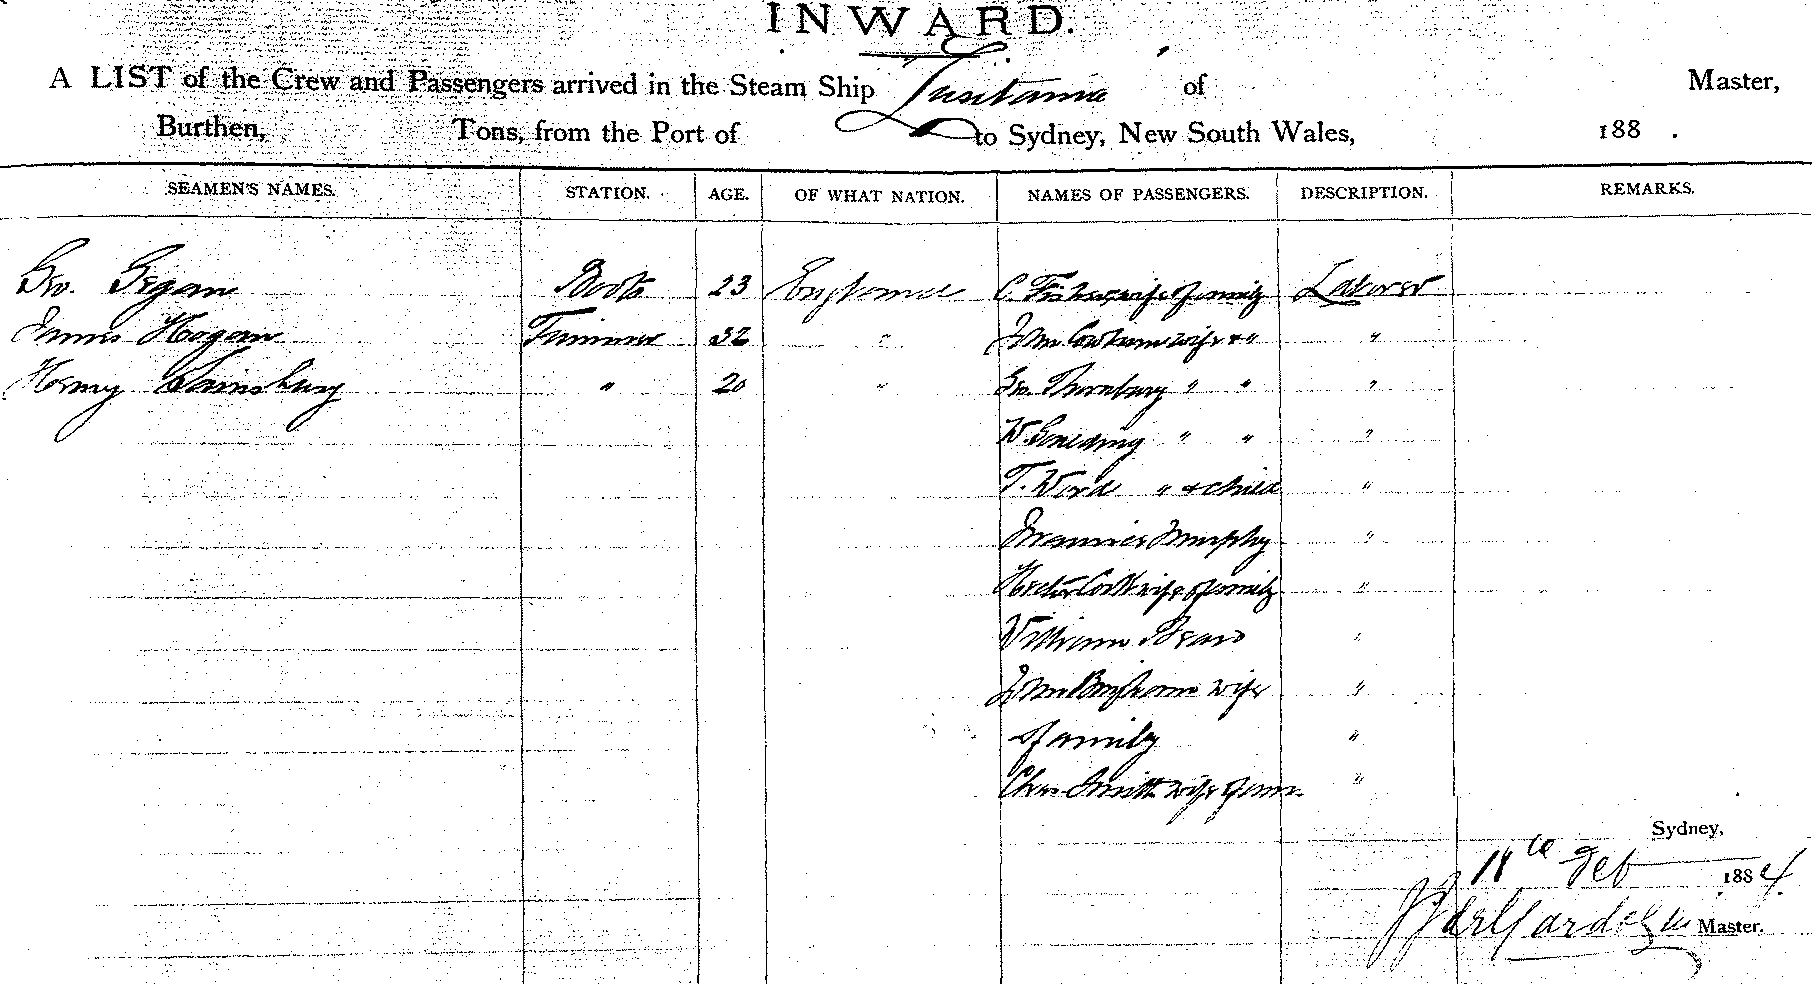 INWARD.
A LIST of the Crew and Passengers arrived in the Steam Ship Lusitania of Master,
Burthen, Tons, from the Port of to Sydney, New South Wales, 188 .
SEAMEN'S NAMES. STATION. AGE. OF WHAT NATION. NAMES OF PASSENGERS. DESCRIPTION. REMARKS.
Geo. Boots 23 England C. Fisher wife & family Laborer
James Hogan Trimmer 32 " Wm wife & " "
Henry Sainsbury " 20 " Geo. Thornbury " " "
W. Goulding " " "
T. Ward " & child "
Murphy "
Hector wife & family "
William "
Wm Brigham wife "
& family "
Chas. Smith wife & fam. "
Sydney,
Feb 1884.
Master.